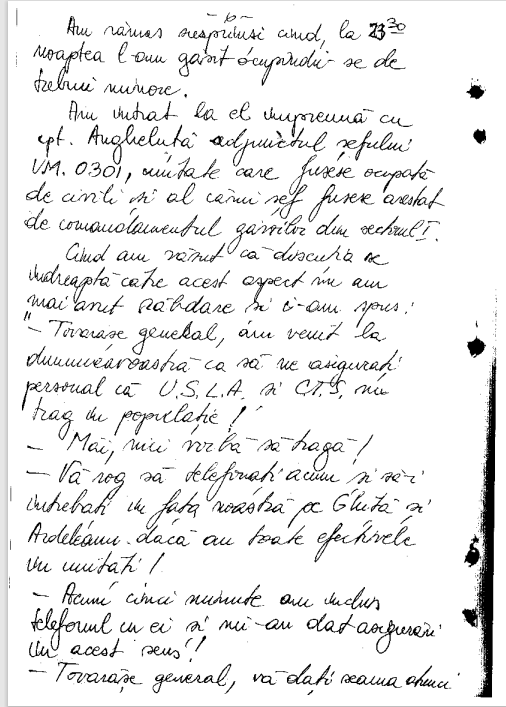 - 6 -
Am rămas nesprinsi cînd, la 23 30
noaptea l-am gasit ocupîndu-se de
trebiu minore.
Am intrat la el împreună cu
cpt. Anghelută adjunctul sefului
UM. 0301, unitate care fusese ocupată
de civili si al cărui sef fusese arestat
de comandamentul gărzilor din sectorul I.
Cînd am văzut că discutia se
îndreaptă catre acest aspect nu am
mai avut răbdare si i-am spus:
"- Tovarase general, am venit la
dumneavoastră ca să ne asigurati
personal că U.S.L.A. si C.T.S. nu
trag în populatie!
- Măi, nici vorbă să tragă!
- Vă rog să telefonati acum si să-i
întrebati în fata noastră pe Ghită si
Ardeleanu dacă au toate efectivele
în unitati!
- Acum cinci minute am închis
telefonul cu ei si mi-au dat asigurări
în acest sens!
- Tovarase general, vă dati seama atunci